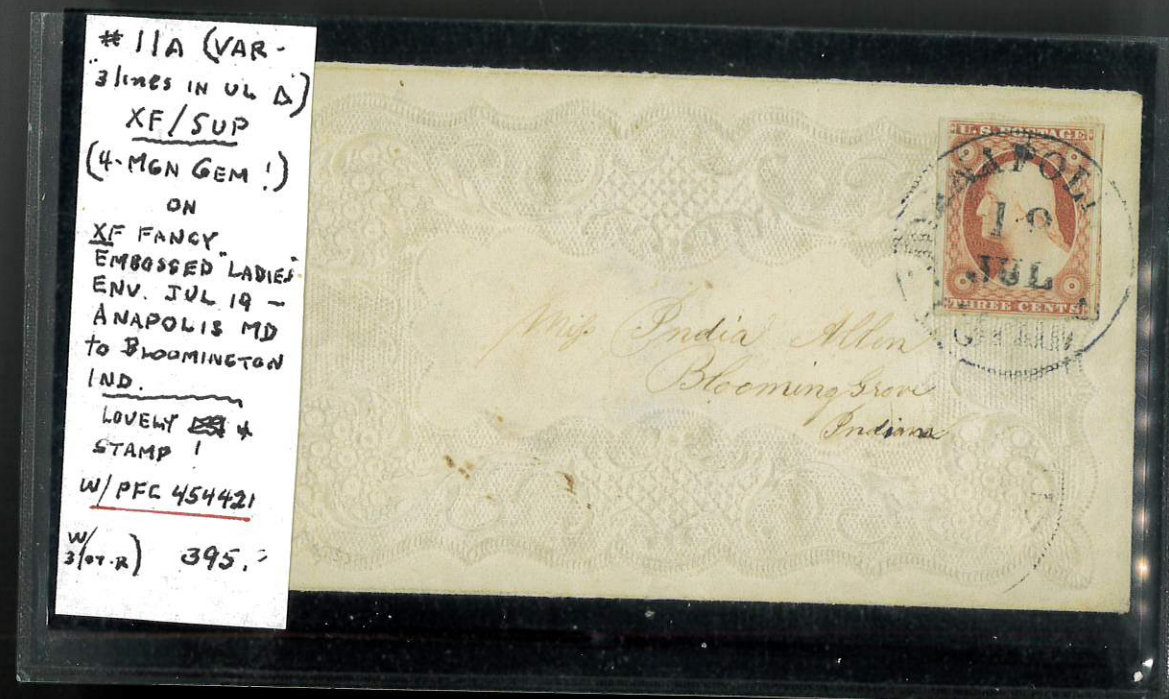 # 11A (VAR-
"3 lines IN UL Δ")
XF/SUP
(4-MGN GEM!)
ON
XF FANCY
EMBOSSED "LADIES"
ENV. JUL 19 –
ANAPOLIS MD
to BLOOMINGTON
IND.
LOVELY
STAMP !
W/ PFC 454421
W/
3/07-R) 395.-
U.S. POSTAGE
19
JUL
THREE CENTS
Miss India Allen
Blooming Grove
Indiana